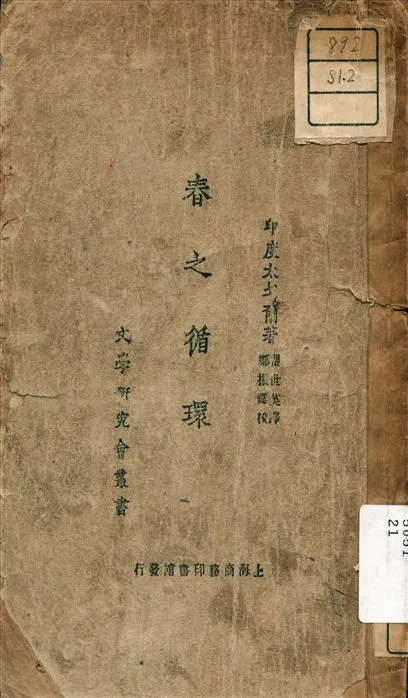 892
S1.2
印度太戈爾著
瞿世英譯
鄭振鐸校
春之循環
文學研究會叢書
上海商務印書館發行
5051
21